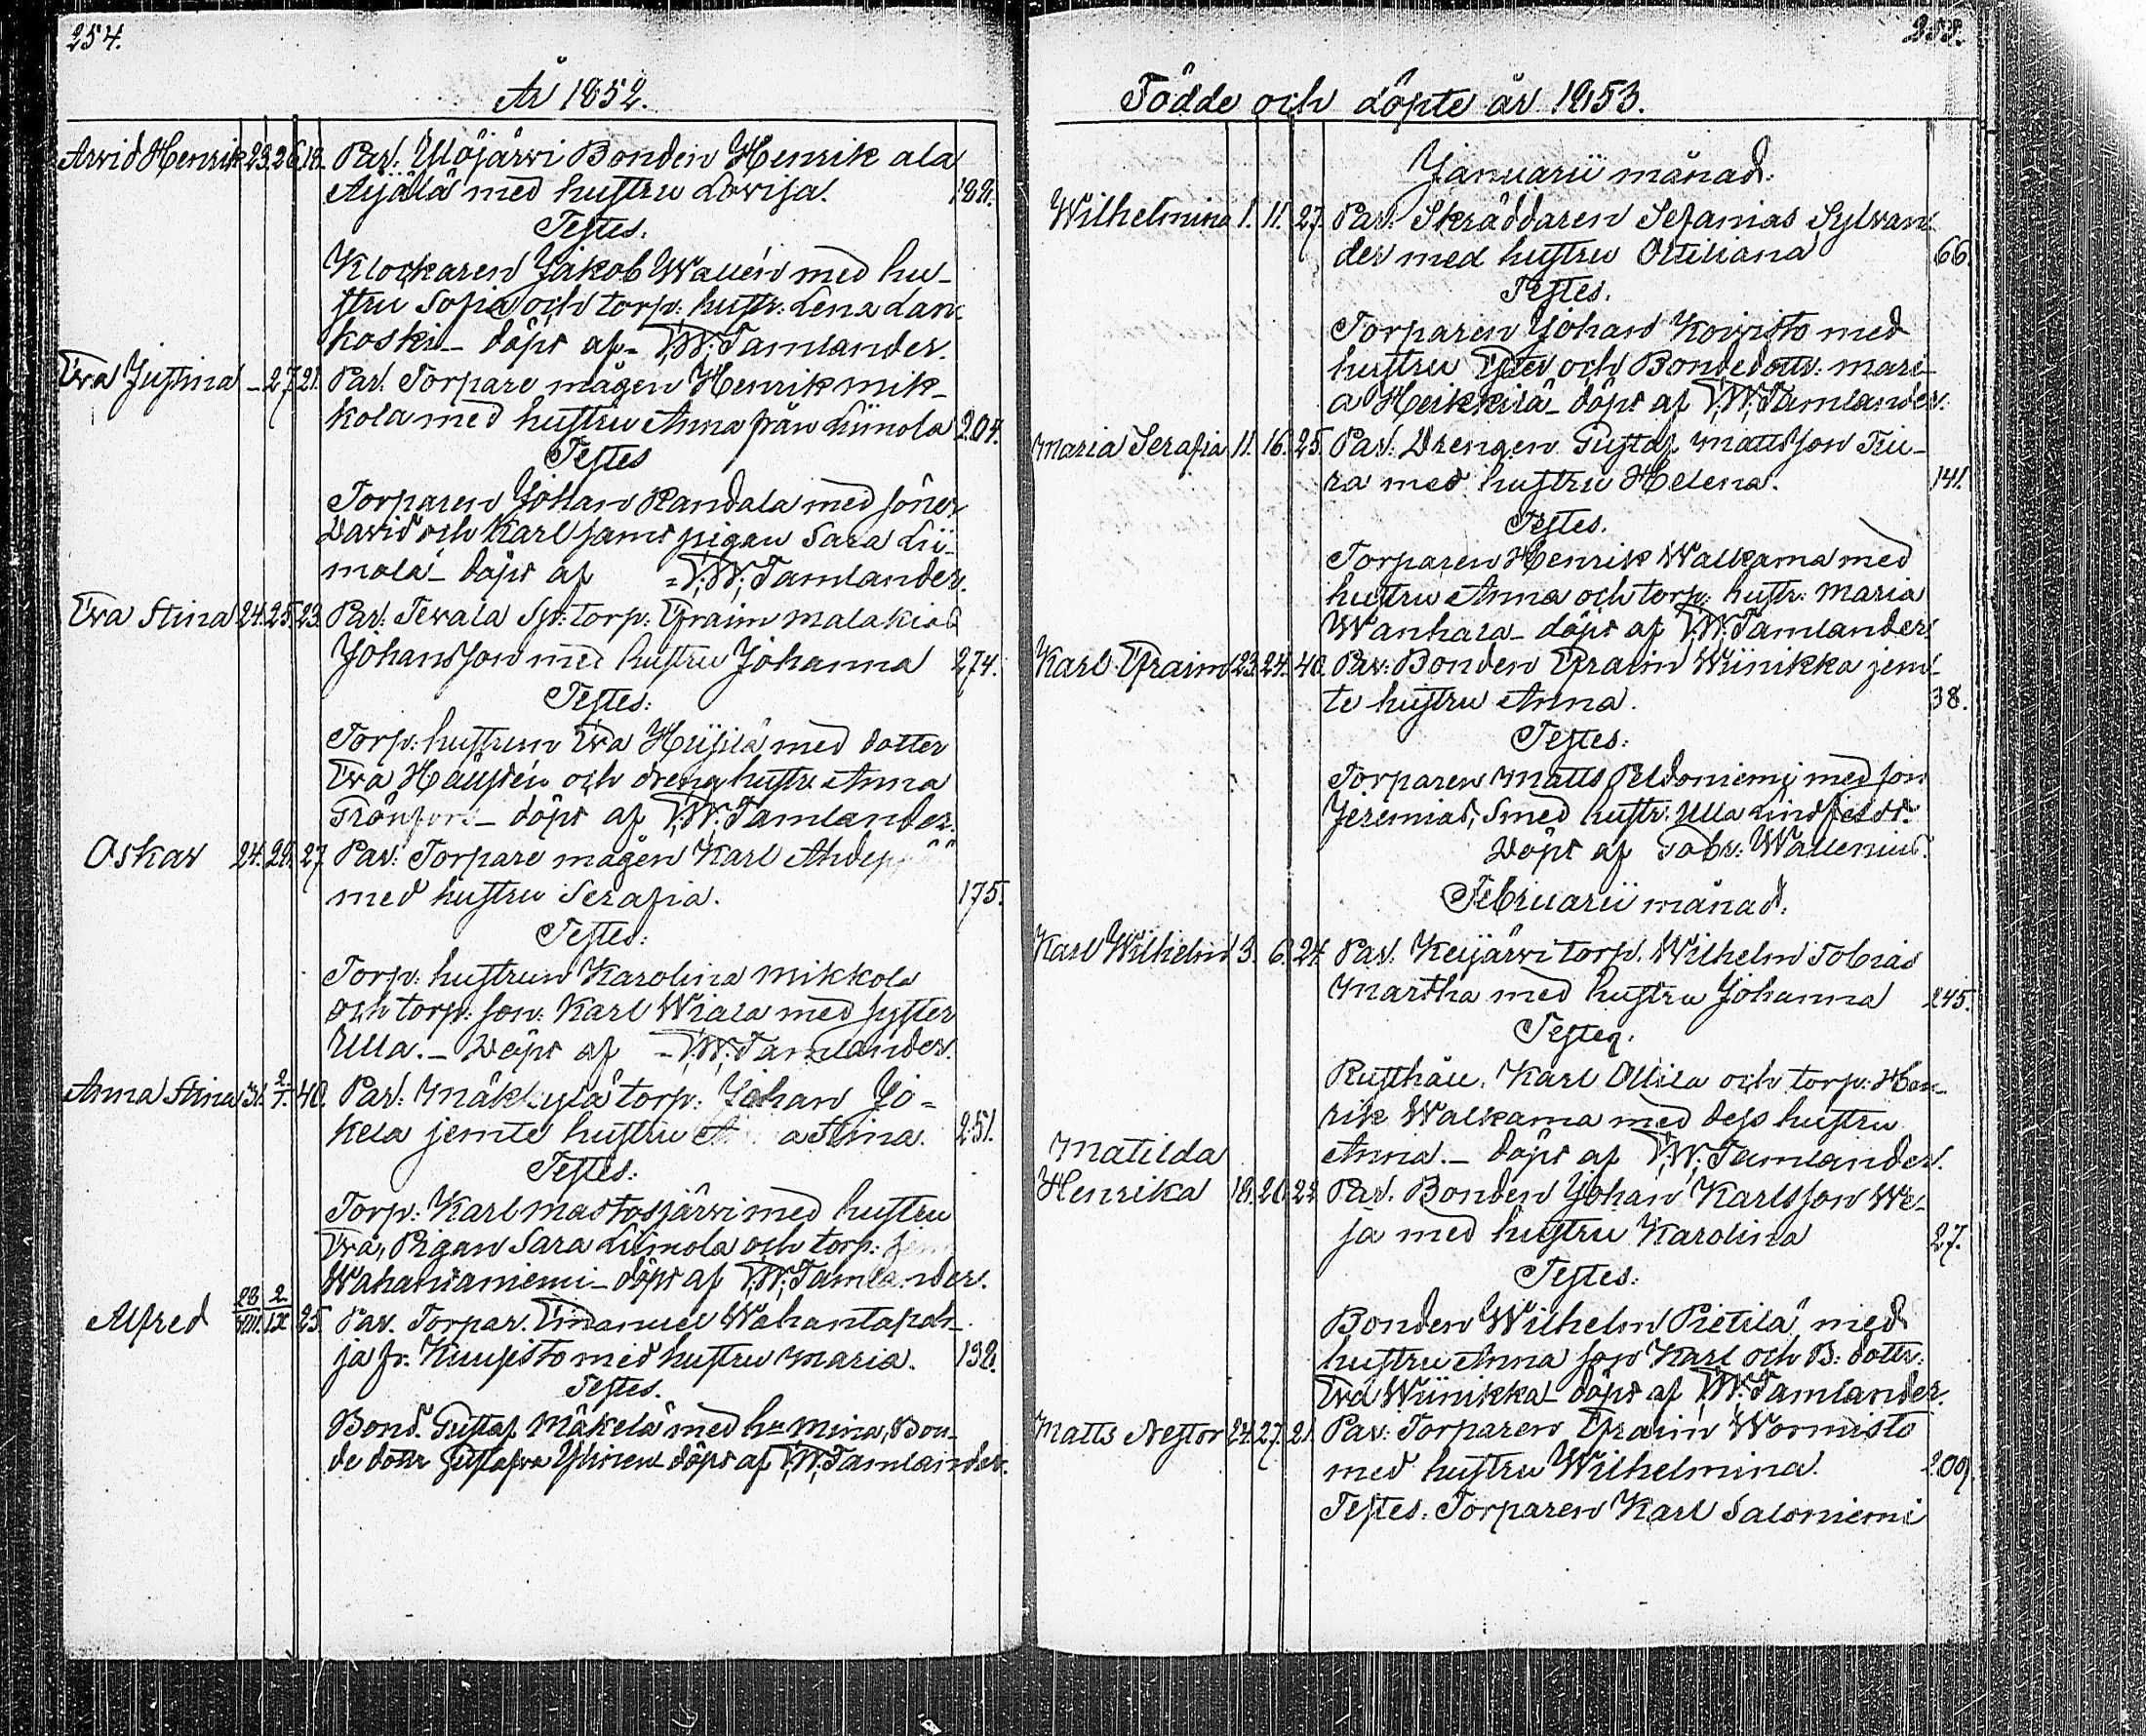 254.
År 1852.
Arvid Henrik 23. 26. 18. Par. Ylöjärvi Bonden Henrik ala
Äijälä med hustru Lovisa. 188.
Testes.
Klockaren Jakob Wallén med hu-
stru Sofia och torp: hustr: Lena Lan-
koski - döpt af - V.W. Tamlander.
Eva Justina - 27. 21. Par. Torpare mågen Henrik Mik-
kola med hustru Anna från Liinola 204.
Testes
Torparen Johan Randala med söner
David och Karl samt pigan Sara Lii-
mola - döpt af - V.W. Tamlander.
Eva Stina 24. 25. 23. Par: Tevala torp: Efraim Malakias
Johansson med hustru Johanna 274.
Testes:
Torp: hustrun Eva Heijilä med dotter
Eva och dreng hustr. Anna
Grönfors - döpt af V.W. Tamlander.
Oskar 24. 29. 27. Par: Torpare mågen Karl
med hustru Serafia. 175.
Testes:
Torp: hustrun Karolina Mikkola
och torp: son: Karl Wiala med syster
Ulla. - Döpt af - V.W. Tamlander.
Anna Stina 31. 2/1. 40. Par: Mäkkylä torp: Johan Jo-
kela jemte hustru a Stina. 251.
Testes:
Torp: Karl Mastosjärvi med hustru
Eva, Pigan Sara Liimola och torp:
Wahantaniemi - döpt af V.W. Tamlander.
Alfred 28/VIII. 2/IX 25. Par. Torpar. Emanuel Wahantapoh-
ja fr. Kuusisto med hustru Maria. 138.
Testes.
Bond. Gustaf Mäkelä med hu Mina, Bon-
de dottr Gustafva döpt af V.W. Tamlander.
255.
Födde och döpte år 1853.
Januarii månad.
Wilhelmina 1. 11. 27. Par. Skräddaren Sefanias Sylvan-
der med hustru Ottiliana 66.
Testes.
Torparen Johan Koivisto med
hustru Ester och Bondedottr: Mari-
a Heikkilä - döpt af V.W. Tamlander.
Maria Serafia 11. 16. 25. Par: Drengen Gustaf Mattsson Tiu-
ra med hustru Helena. 141.
Testes.
Torparen Henrik Walkama med
hustru Anna och torp: hustr: Maria
Wanhala - döpt af V.W. Tamlander.
Karl Efraim 23. 24. 40. Par: Bonden Efraim Wiinikka jem-
te hustru Anna. 38.
Testes:
Torparen Matts Peldoniemi med son
Jeremias, Smed hustr. Ulla Lindfeldt.
Döpt af Gabr: Wallenius.
Februarii månad.
Karl Wilhelm 3. 6. 24. Par. Keijärvi torp. Wilhelm Tobias
Martha med hustru Johanna 245.
Testes.
Rusthåll. Karl Ollila och torp: Hen-
rik Walkama med dess hustru
Anna. - döpt af V.W. Tamlander.
Matilda
Henrika 18. 20. 22 Par. Bonden Johan Karlsson We-
ja med hustru Karolina 27.
Testes.
Bonden Wilhelm Pietilä med
hustru Anna son Karl och B. dottr:
Eva Wiinikka - döpt af V.W. Tamlander.
Matts Nestor 24. 27. 21. Par: Torparen Efraim Wormisto
med hustru Wilhelmina. 209.
Testes. Torparen Karl Saloniemi